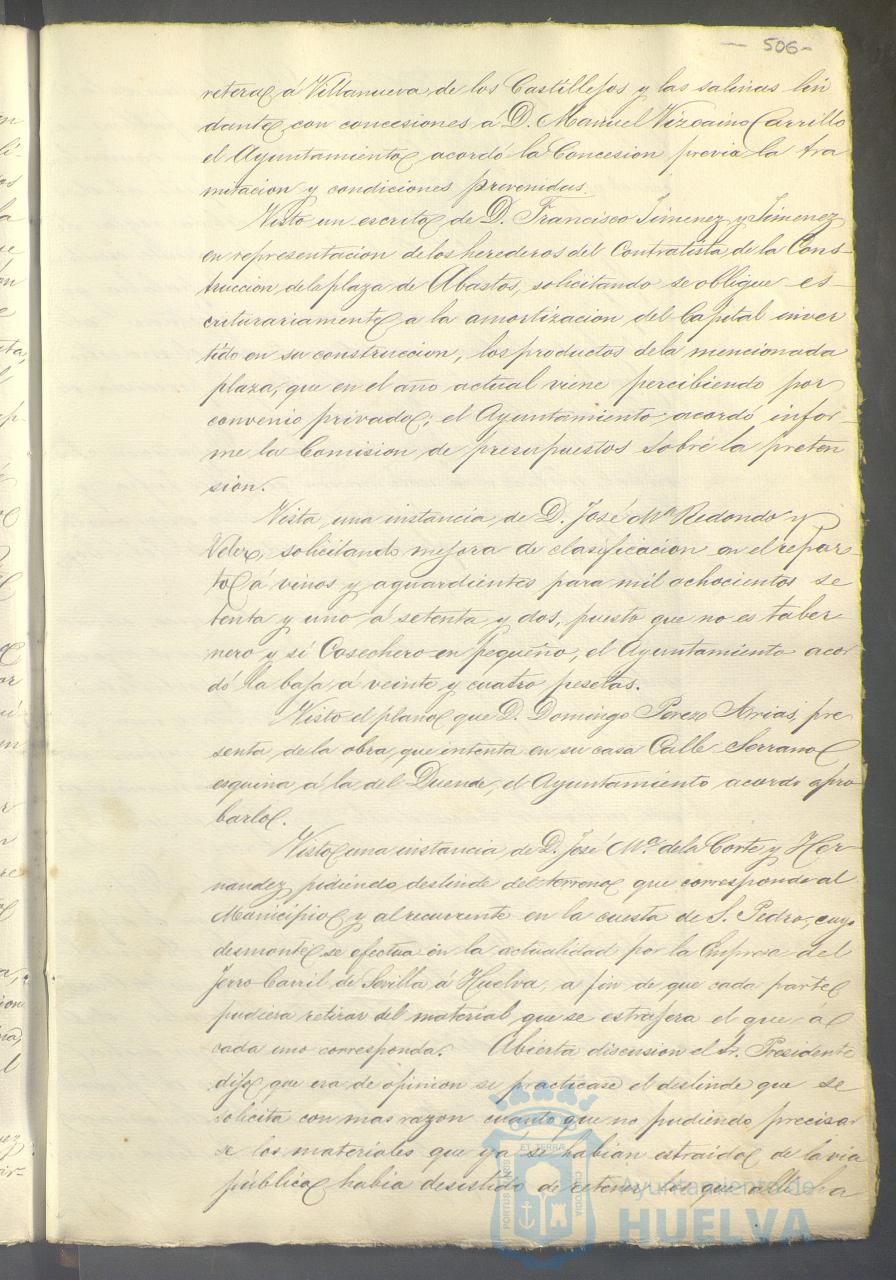 506-
retera á Villanueva de los Castillejos y las salinas lin
dante con concesiones á D. Manuel Vizcaino Carrillo
el Ayuntamiento acordó la Concesion previa la tra
mitacion y condiciones prevenidas.
Visto un escrito de D. Francisco Jimenez y Jimenez
en representacion de los herederos del Contratista de la Cons-
truccion dela plaza de Abastos, solicitando se obligue es-
criturariamente a la amortizacion del Capital inver
tido en su construccion, los productos dela mencionada
plaza, que en el año actual viene percibiendo por
convenio privado; el Ayuntamiento acordó infor-
me la Comision de presupuestos sobre la preten
sion.
Vista una instancia de D. José Mª Redondo y
Velez, solicitando mejora de clasificacion en el repar-
to á vinos y aguardientes para mil achocientos se
tenta y uno á setenta y dos, puesto que no es taber
nero y sí Cosechero en pequeño, el Ayuntamiento acor
dó la baja á veinte y cuatro pesetas.
Visto el plano que D. Domingo Perezo Arrias, pre
senta de la obra que intenta en su casa Calle Serrano
esquina á la del Duende, el Ayuntamiento acordo apro
barlo.
Visto una instancia de D. José Mª dela Corte y Her-
nandez pidiendo deslinde del terreno que corresponde al
Municipio y al recurrente en la cuesta de S. Pedro, cuyo
desmonte se efectua en la actualidad por la Empresa del
Ferro Carril de Sevilla á Huelva, a fin de que cada parte
pudiera retirar del material que se estrajera el que á
cada uno corresponda. Abierta discusion el Sr. Presidente
dijo que era de opinion se practicase el deslinde que se
solicita con mas razon cuanto que no pudiendo precisar
se los materiales que ya se habian estraido de la via
pública habia desistido de retener los que allí ha
PORTUS MARIS ET TERRÆ CUSTODIA
Ayuntamiento de
HUELVA